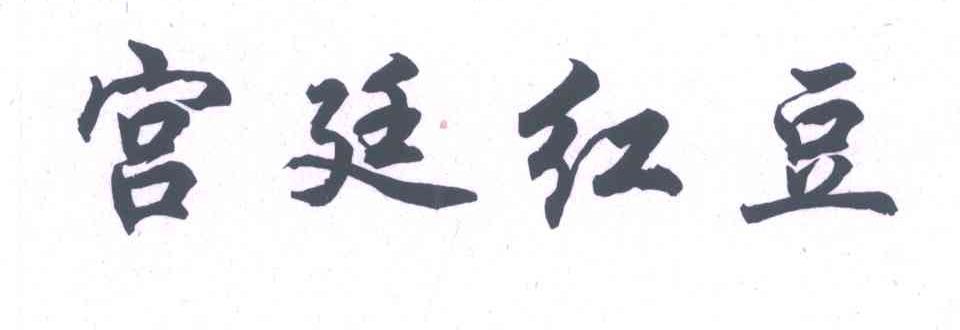 宫廷红豆